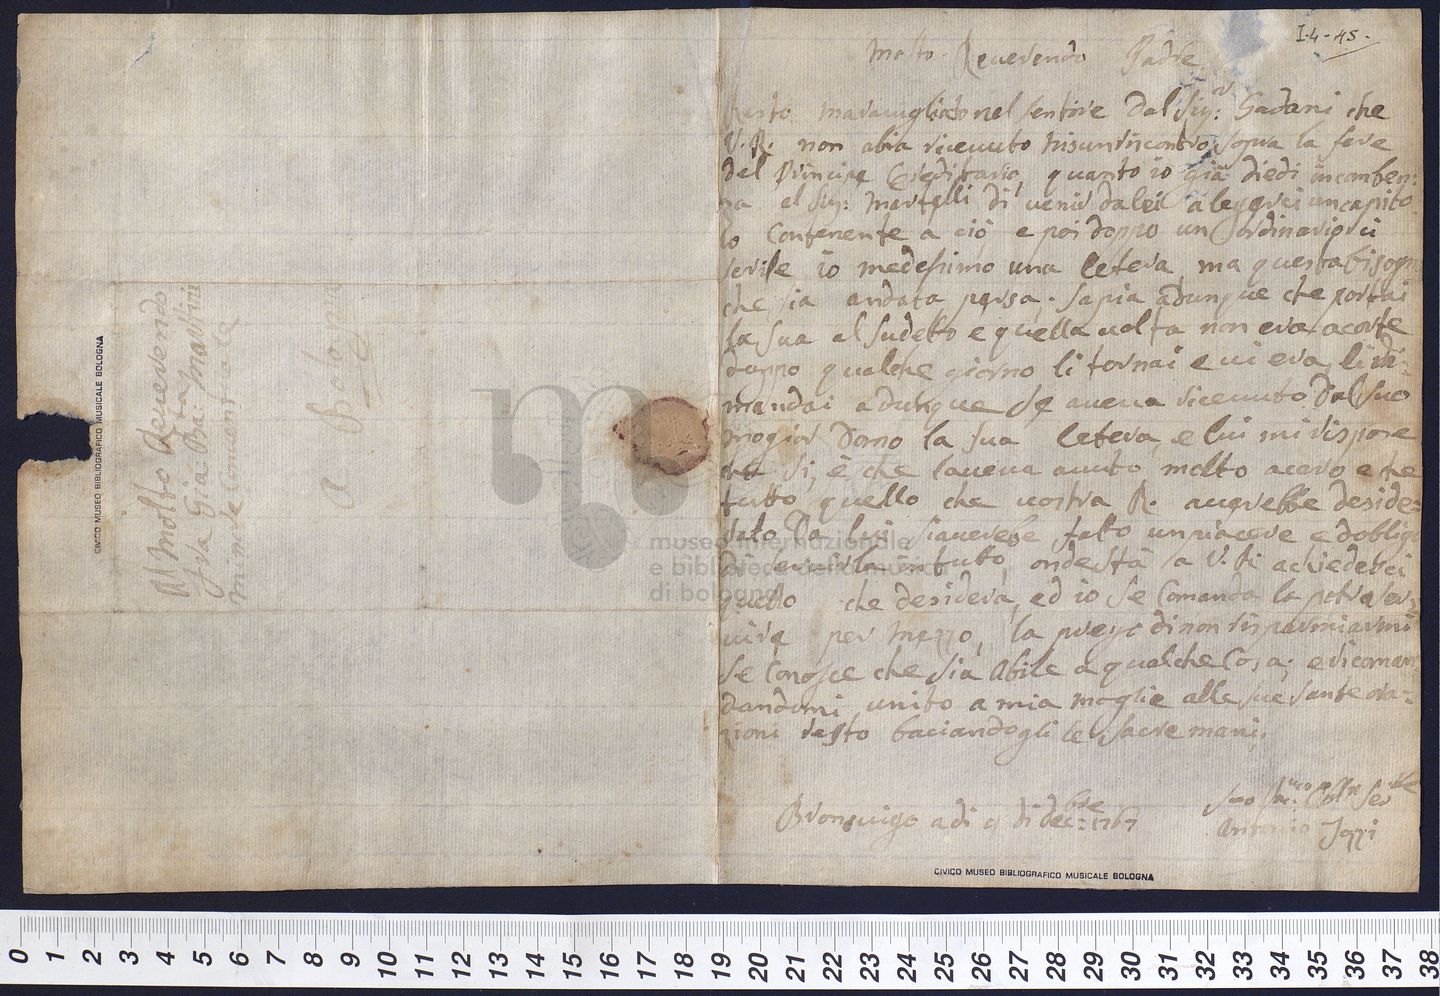 I-4-45-
Molto Reverendo Padre
Resto maravigliato nel sentire dal Sig:r Gadani che
V. R. non abia ricevuto nisun riscontro sopra la fere
del Principe Ereditario, quanto io già diedi incomben:
za al Sig: Martelli di venir da lei a legerci un capito
lo Contenente a ciò e poi doppo un ordinario ci
scrise io medessimo una letera, ma questa bisogn
che sia andata persa. Sapia adunque che portai
la sua al sudetto e quella volta non era a corte
doppo qualche giorno li tornai e vi era, li di:
mandai adunque se aveva ricevuto dal suo
mogior Domo la sua letera, e lui mi rispose
che si, è che laveva avuto molto acero e che
tutto quello che vostra R. avrebbe deside:
rato Da lui si averebe fatto un piacere e dobligo
di servirla in tutto, onde stà a V. R. a chiederci
quello che desidera, ed io se Comanda la potra ser:
vire per mezzo, la prego di non risparmiarmi
se Conosce che sia abile a qualche Cosa; e ricoman
dandomi unito a mia moglie alle sue sante ora:
zioni resto baciandogli le sacre mani.
Bronsvigo adi 9 di dec:bre 1767
Antonio Jozzi
Al Molto Reverendo
fra Gia: Bai: Martini
minore Conventuale
A Bologna
CIVICO MUSEO BIBLIOGRAFICO MUSICALE BOLOGNA
CIVICO MUSEO BIBLIOGRAFICO MUSICALE BOLOGNA
museo internazionale
e biblioteca della musica
di bologna
0 1 2 3 4 5 6 7 8 9 10 11 12 13 14 15 16 17 18 19 20 21 22 23 24 25 26 27 28 29 30 31 32 33 34 35 36 37 38